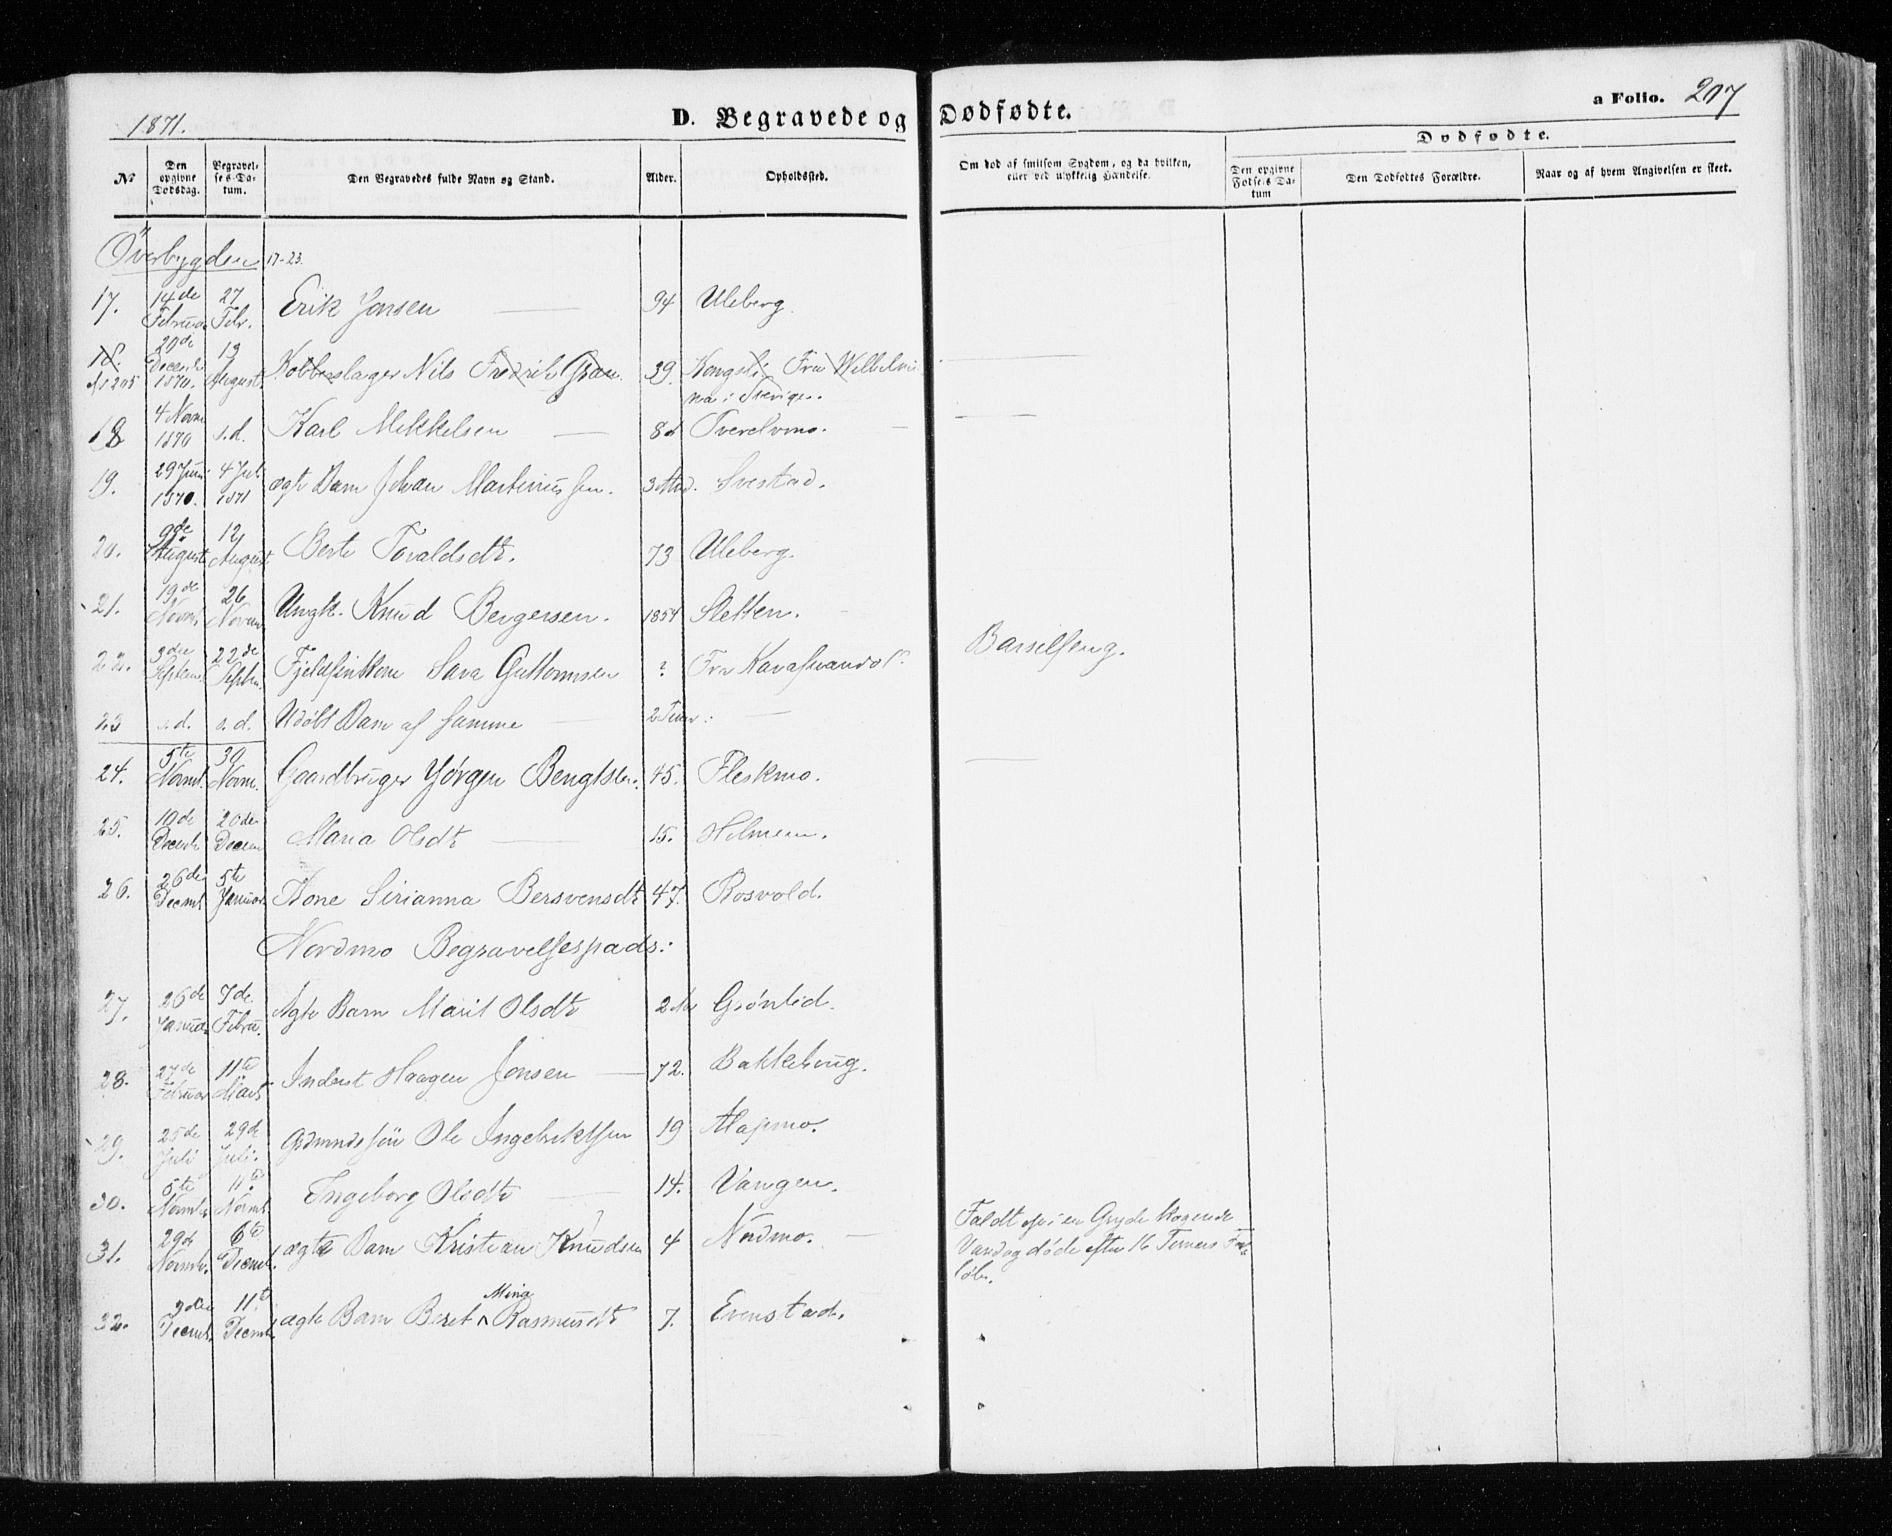 1871.
D. Begravede og Dødfødte.
a Folio. 207
No
Den opgivne Dødsdag.
Begravelses-Datum.
Den Begravedes fulde Navn og Stand.
Alder.
Opholdssted.
Om død af smitsom Sygdom, og da hvilken, eller ved ulykkelig Hændelse.
Dødfødte.
Den opgivne Fødsels Datum
Den Dødfødtes Forældre.
Naar og af hvem Angivelsen er skeet.
Överbygden 17-23.
17. 14de Februar 27 Febr. Erik Jonsen 94 Uleberg.
18. 20de Decemb 1870. 13 August Kobberslager Nils Fredrik Gran. 39. Kongsli Fra Wilhelmina i Sverige.
18 4 Novm 1870 s.d. Karl Mikkelsen Tverelvmo.
19. 29 Juni 1870. 4 Jul. 1871 ægte Barn Johan Martinussen. 3 Svestad.
20. 9de August 12 August Berte Tovaldsdt. 73 Uleberg.
21. 19de Novmb 26 Novem Ungk. Knud Bergersen. 1854 Sletten.
22. 3die Septem 22de Septem. Fjeldfinkone Sara Guttormsen ? Fra Barselseng.
23 s.d. s.d. Udøbt Barn af samme 2 Timer.
24. 5te Novmb. 30 Novm. Gaardbruger Jørgen Bengtsen. 45. Fleskmo.
25. 10de Decmb 20de Decem Maria Olsdt 15. Holmen.
26. 26de Decmb 5te Januar Ane Sirianna Bersvensdt 47. Rosvold.
Nordmo Begravelsesplads:
27. 26de Januar 7de Febru. Ægte Barn Marit Olsdt 2 Grønlid.
28. 27de Februar 11te Marts Inderst Haagen Jonsen 72. Bakkehaug.
29. 25de Juli 29de Juli. Gdmndssøn Ole Ingebriktsen 19 Alapmo.
30. 5te Novmb 11te Novmb Ingeborg Olsdt 14. Vangen.
31. 29de Novmb. 6te Decmb. ægte Barn Kristian Knudsen 4 Nordmo. Faldt i en Gryde kogende
Vand og døde efter 16 Timers For-
løb.
32. 3die Decmb. 11te Decmb. ægte Barn Beret Mina Rasmusdt 7. Evenstad.